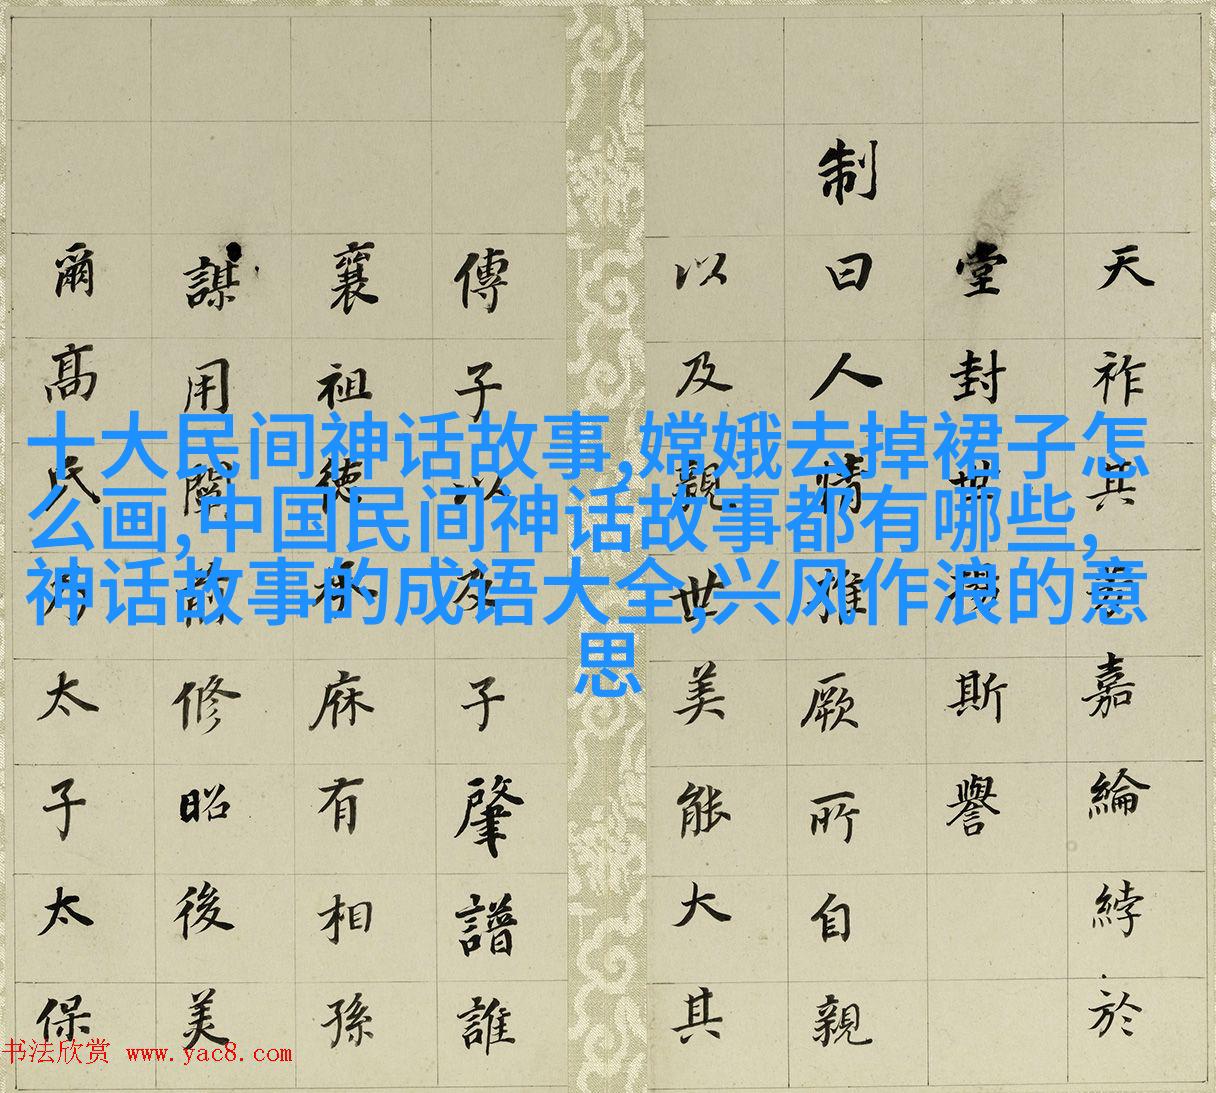 十大民间神话故事,嫦娥去掉裙子怎
么画,中国民间神话故事都有哪些,
神话故事的成语大全,兴风作浪的意
思
天祚其嘉綸綍於
堂封世斯譽
制曰人情雅厥所自親
以及親世美能大其
傳子以及子肇譜誰
襄祖德麻有相孫
謀用關脩昭後美
爾高氏太子太保
书法欣赏 www.yac8.com